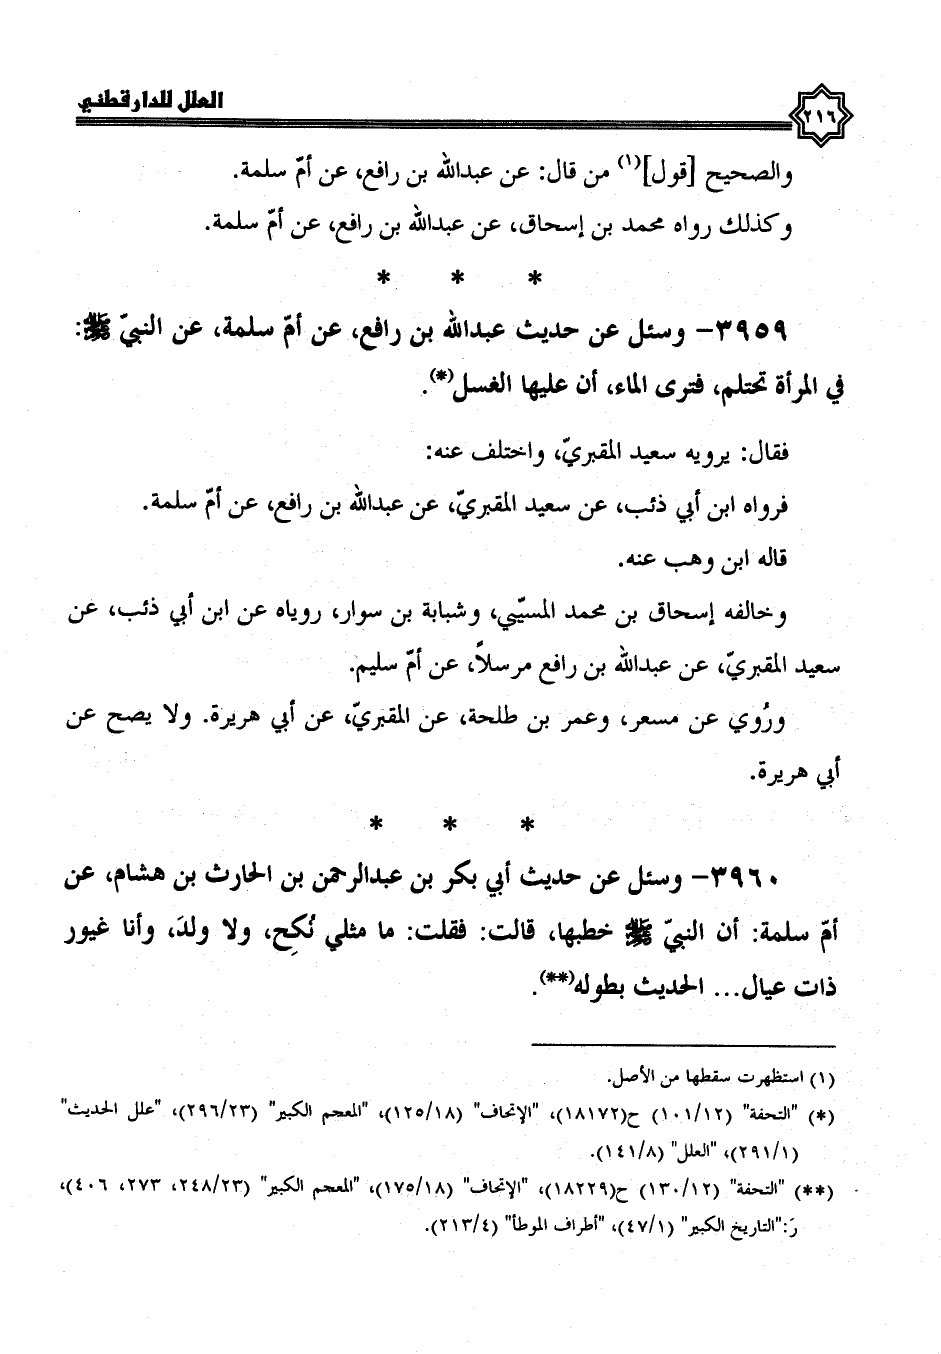 ٢١٦
العلل للدارقطني
والصحيح [قول](١) من قال: عن عبدالله بن رافع، عن أمّ سلمة.
وكذلك رواه محمد بن إسحاق، عن عبدالله بن رافع، عن أمّ سلمة.
* * *
٣٩٥٩- وسئل عن حديث عبدالله بن رافع، عن أمّ سلمة، عن النبيّ ﷺ:
في المرأة تحتلم، فترى الماء، أن عليها الغسل(*).
فقال: يرويه سعيد المقبريّ، واختلف عنه:
فرواه ابن أبي ذئب، عن سعيد المقبريّ، عن عبدالله بن رافع، عن أمّ سلمة.
قاله ابن وهب عنه.
وخالفه إسحاق بن محمد المسيّبي، وشبابة بن سوار، روياه عن ابن أبي ذئب، عن
سعيد المقبريّ، عن عبدالله بن رافع مرسلاً، عن أمّ سليم.
ورُوي عن مسعر، وعمر بن طلحة، عن المقبريّ، عن أبي هريرة. ولا يصح عن
أبي هريرة.
* * *
٣٩٦٠- وسئل عن حديث أبي بكر بن عبدالرحمن بن الحارث بن هشام، عن
أمّ سلمة: أن النبيّ ﷺ خطبها، قالت: فقلت: ما مثلي نُكِح، ولا ولدَ، وأنا غيور
ذات عيال... الحديث بطوله(**).
(١) استظهرت سقطها من الأصل.
(*) "التحفة" (١٠١/١٢) ح(١٨١٧٢)، "الإتحاف" (١٢٥/١٨)، "المعجم الكبير" (٢٩٦/٢٣)، "علل الحديث"
(٢٩١/١)، "العلل" (١٤١/٨).
(**) "التحفة" (١٣٠/١٢) ح(١٨٢٢٩)، "الإتحاف" (١٧٥/١٨)، "المعجم الكبير" (٢٤٨/٢٣، ٢٧٣، ٤٠٦)،
رَ:"التاريخ الكبير" (٤٧/١)، "أطراف الموطأ" (٢١٣/٤).